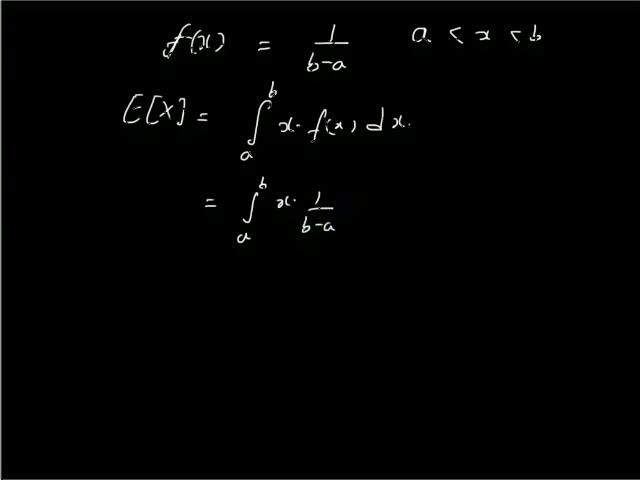 f(x) = 1/(b-a) a < x < b
E[X] = ∫_a^b x · f(x) dx.
= ∫_a^b x · 1/(b-a)